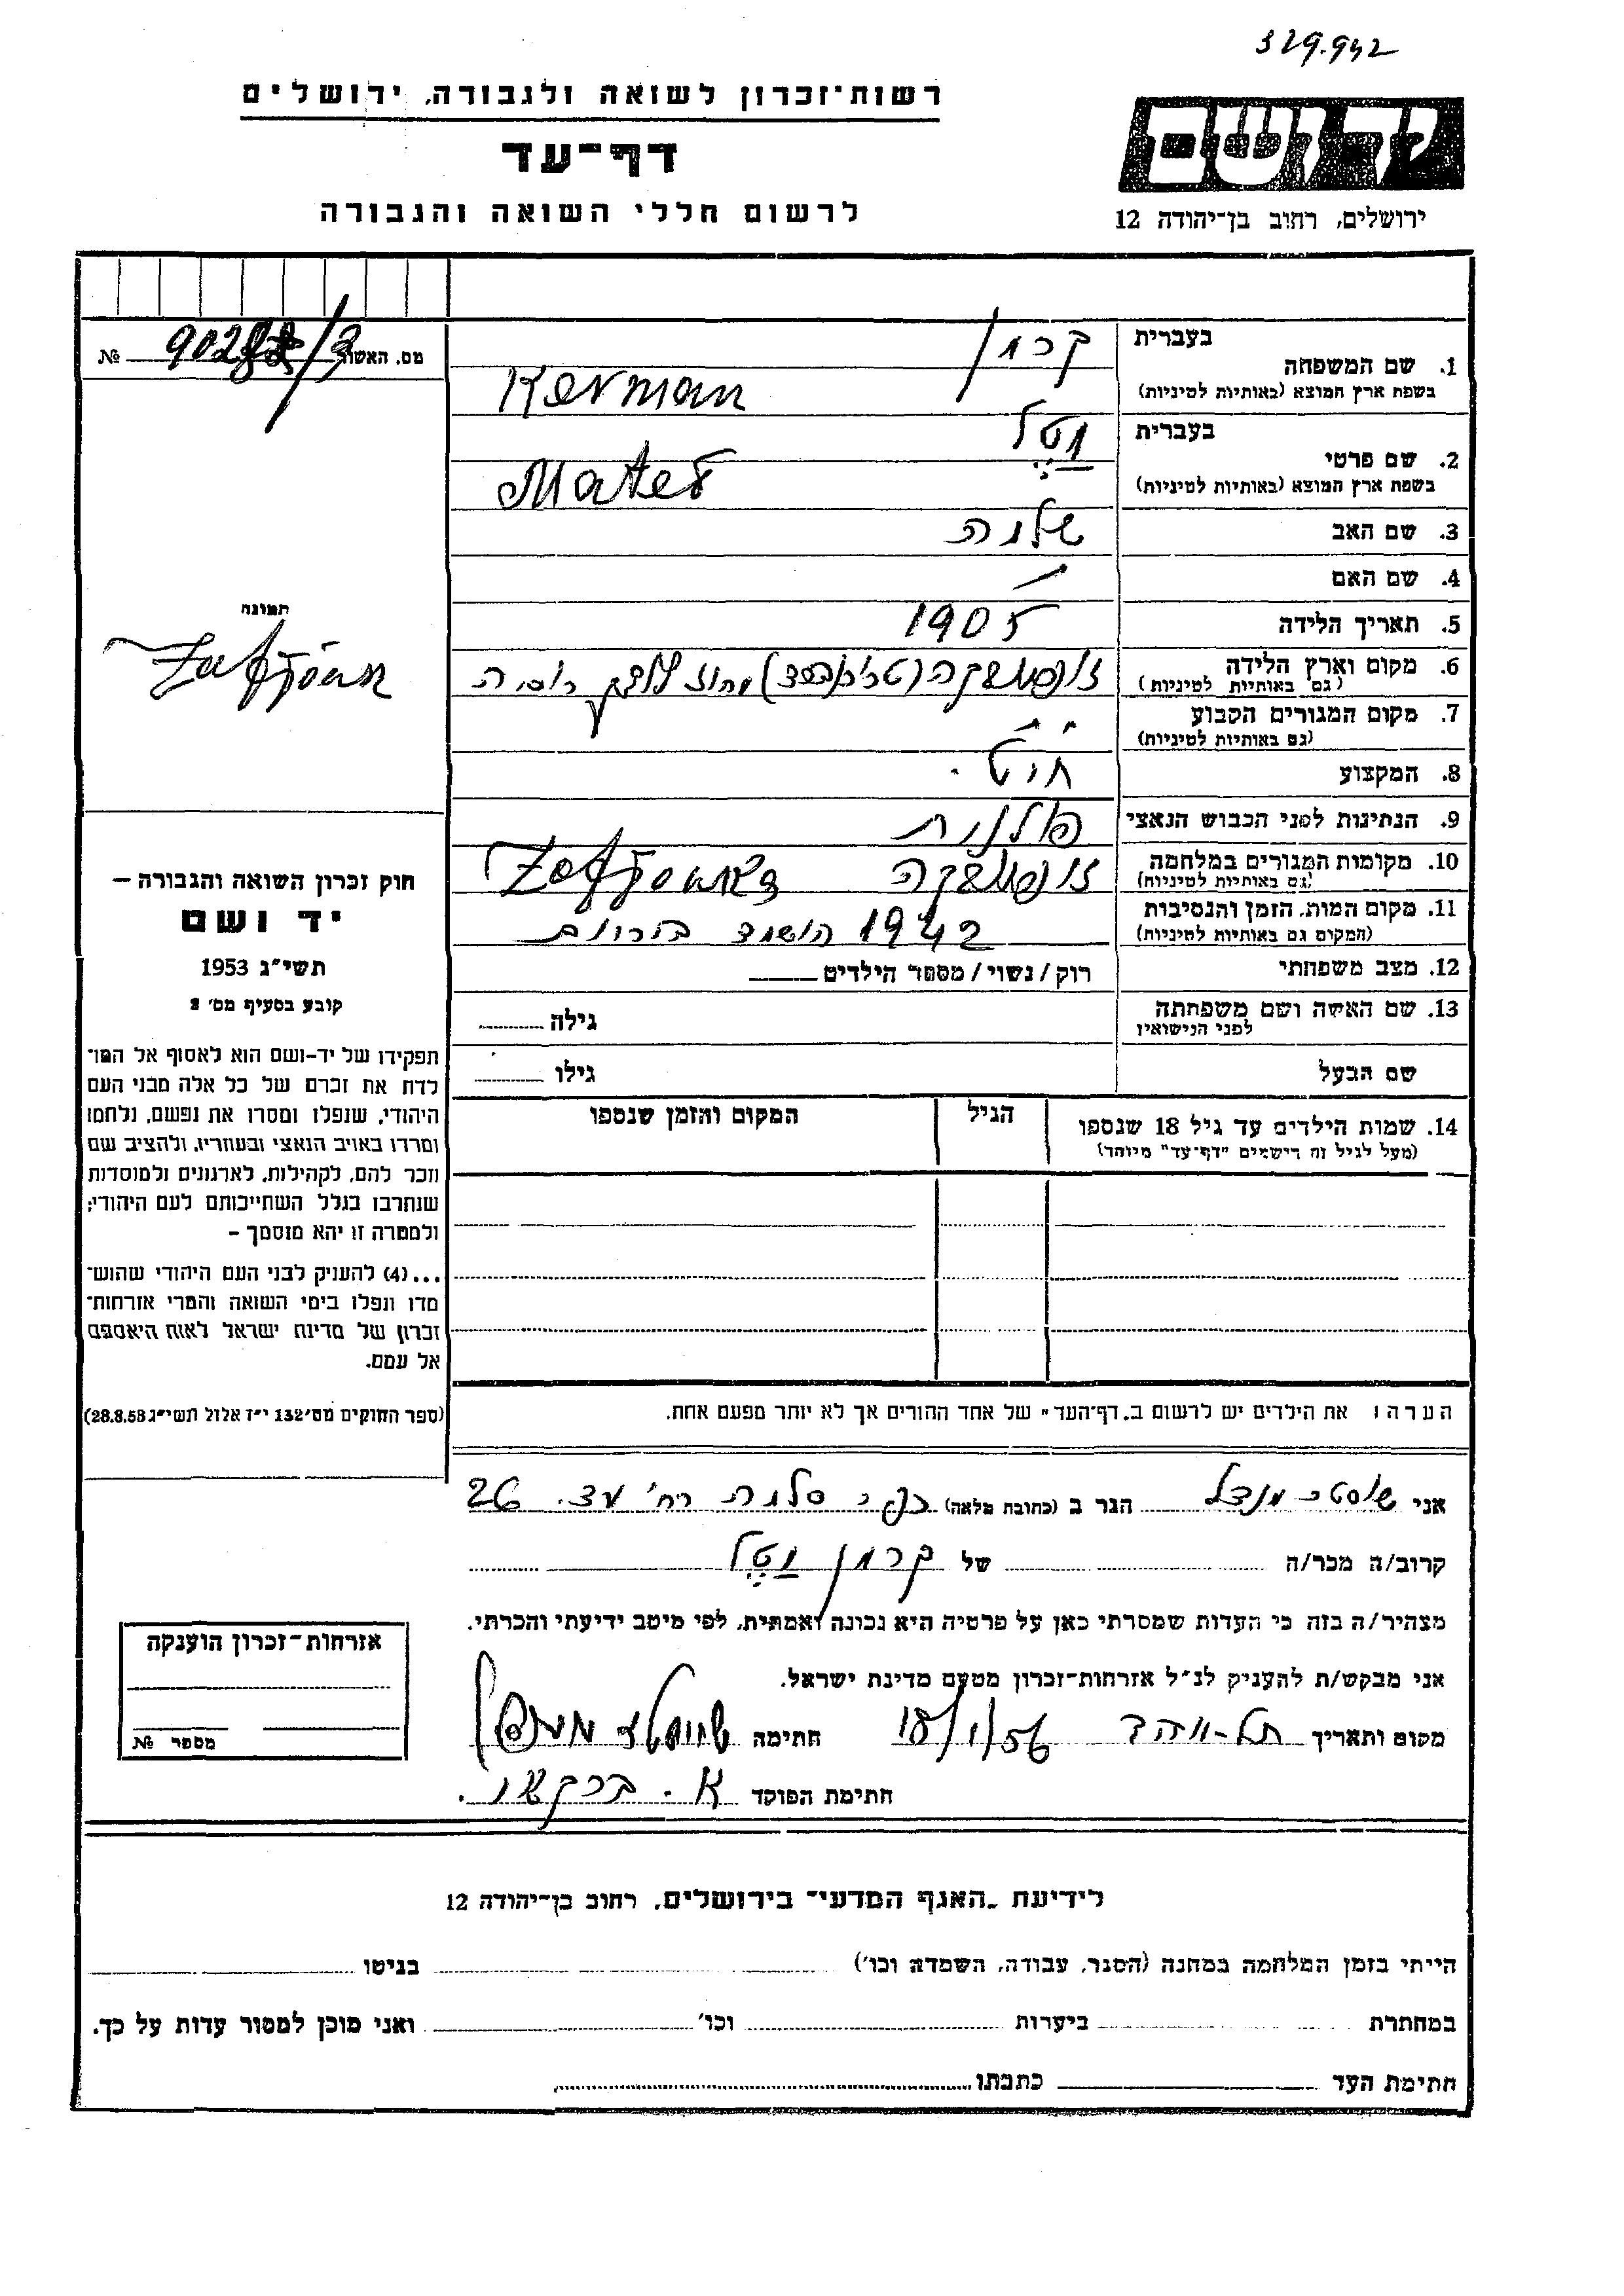 329.942
רשות־זכרון לשואה ולגבורה, ירושלים
דף־עד
לרשום חללי השואה והגבורה
יד ושם
ירושלים, רחוב בן־יהודה 12
מס. האשור № 902
1. שם המשפחה
בעברית קרמן
בשפת ארץ המוצא (באותיות לטיניות) Kerman
2. שם פרטי
בעברית מטל
בשפת ארץ המוצא (באותיות לטיניות)
3. שם האב שלמה
4. שם האם —
5. תאריך הלידה 1905
6. מקום וארץ הלידה
(גם באותיות לטיניות)
7. מקום המגורים הקבוע
(גם באותיות לטיניות) " "
8. המקצוע חייט.
9. הנתינות לפני הכבוש הנאצי פולנית
10. מקומות המגורים במלחמה
(גם באותיות לטיניות)
11. מקום המות, הזמן והנסיבות
(המקום גם באותיות לטיניות) 1942 הושמד
12. מצב משפחתי רוק/נשוי/מספר הילדים
13. שם האשה ושם משפחתה
לפני הנישואין גילה
שם הבעל גילו
14. שמות הילדים עד גיל 18 שנספו
(מעל לגיל זה רישמים "דף־עד" מיוחד)
הגיל
המקום והזמן שנספו
תמונה
חוק זכרון השואה והגבורה –
יד ושם
תשי"ג 1953
קובע בסעיף מס׳ 2
תפקידו של יד-ושם הוא לאסוף אל המו־
לדת את זכרם של כל אלה מבני העם
היהודי, שנפלו ומסרו את נפשם, נלחמו
ומרדו באויב הנאצי ובעוזריו, ולהציב שם
וזכר להם, לקהילות, לארגונים ולמוסדות
שנחרבו בגלל השתייכותם לעם היהודי;
ולמטרה זו יהא מוסמך –
...(4) להעניק לבני העם היהודי שהוש־
מדו ונפלו בימי השואה והמרי אזרחות־
זכרון של מדינת ישראל לאות היאספם
אל עמם.
(ספר החוקים מס׳ 132 י״ז אלול תשי״ג 28.8.53)
הערה: את הילדים יש לרשום ב„דף־העד" של אחד ההורים אך לא יותר מפעם אחת.
אני מנדל הגר ב (כתובת מלאה) סלמה רח׳ 26
קרוב/ה מכר/ה של קרמן מטל
מצהיר/ה בזה כי העדות שמסרתי כאן על פרטיה היא נכונה ואמתית, לפי מיטב ידיעתי והכרתי.
אני מבקש/ת להעניק לנ"ל אזרחות־זכרון מטעם מדינת ישראל.
מקום ותאריך 18/1/56 חתימה
חתימת הפוקד א.
אזרחות־זכרון הוענקה
מספר №
לידיעת „האגף המדעי" בירושלים, רחוב בן־יהודה 12
הייתי בזמן המלחמה במחנה (הסגר, עבודה, השמדה וכו׳) בגיטו
במחתרת ביערות וכו׳ ואני מוכן למסור עדות על כך.
חתימת העד כתבתו